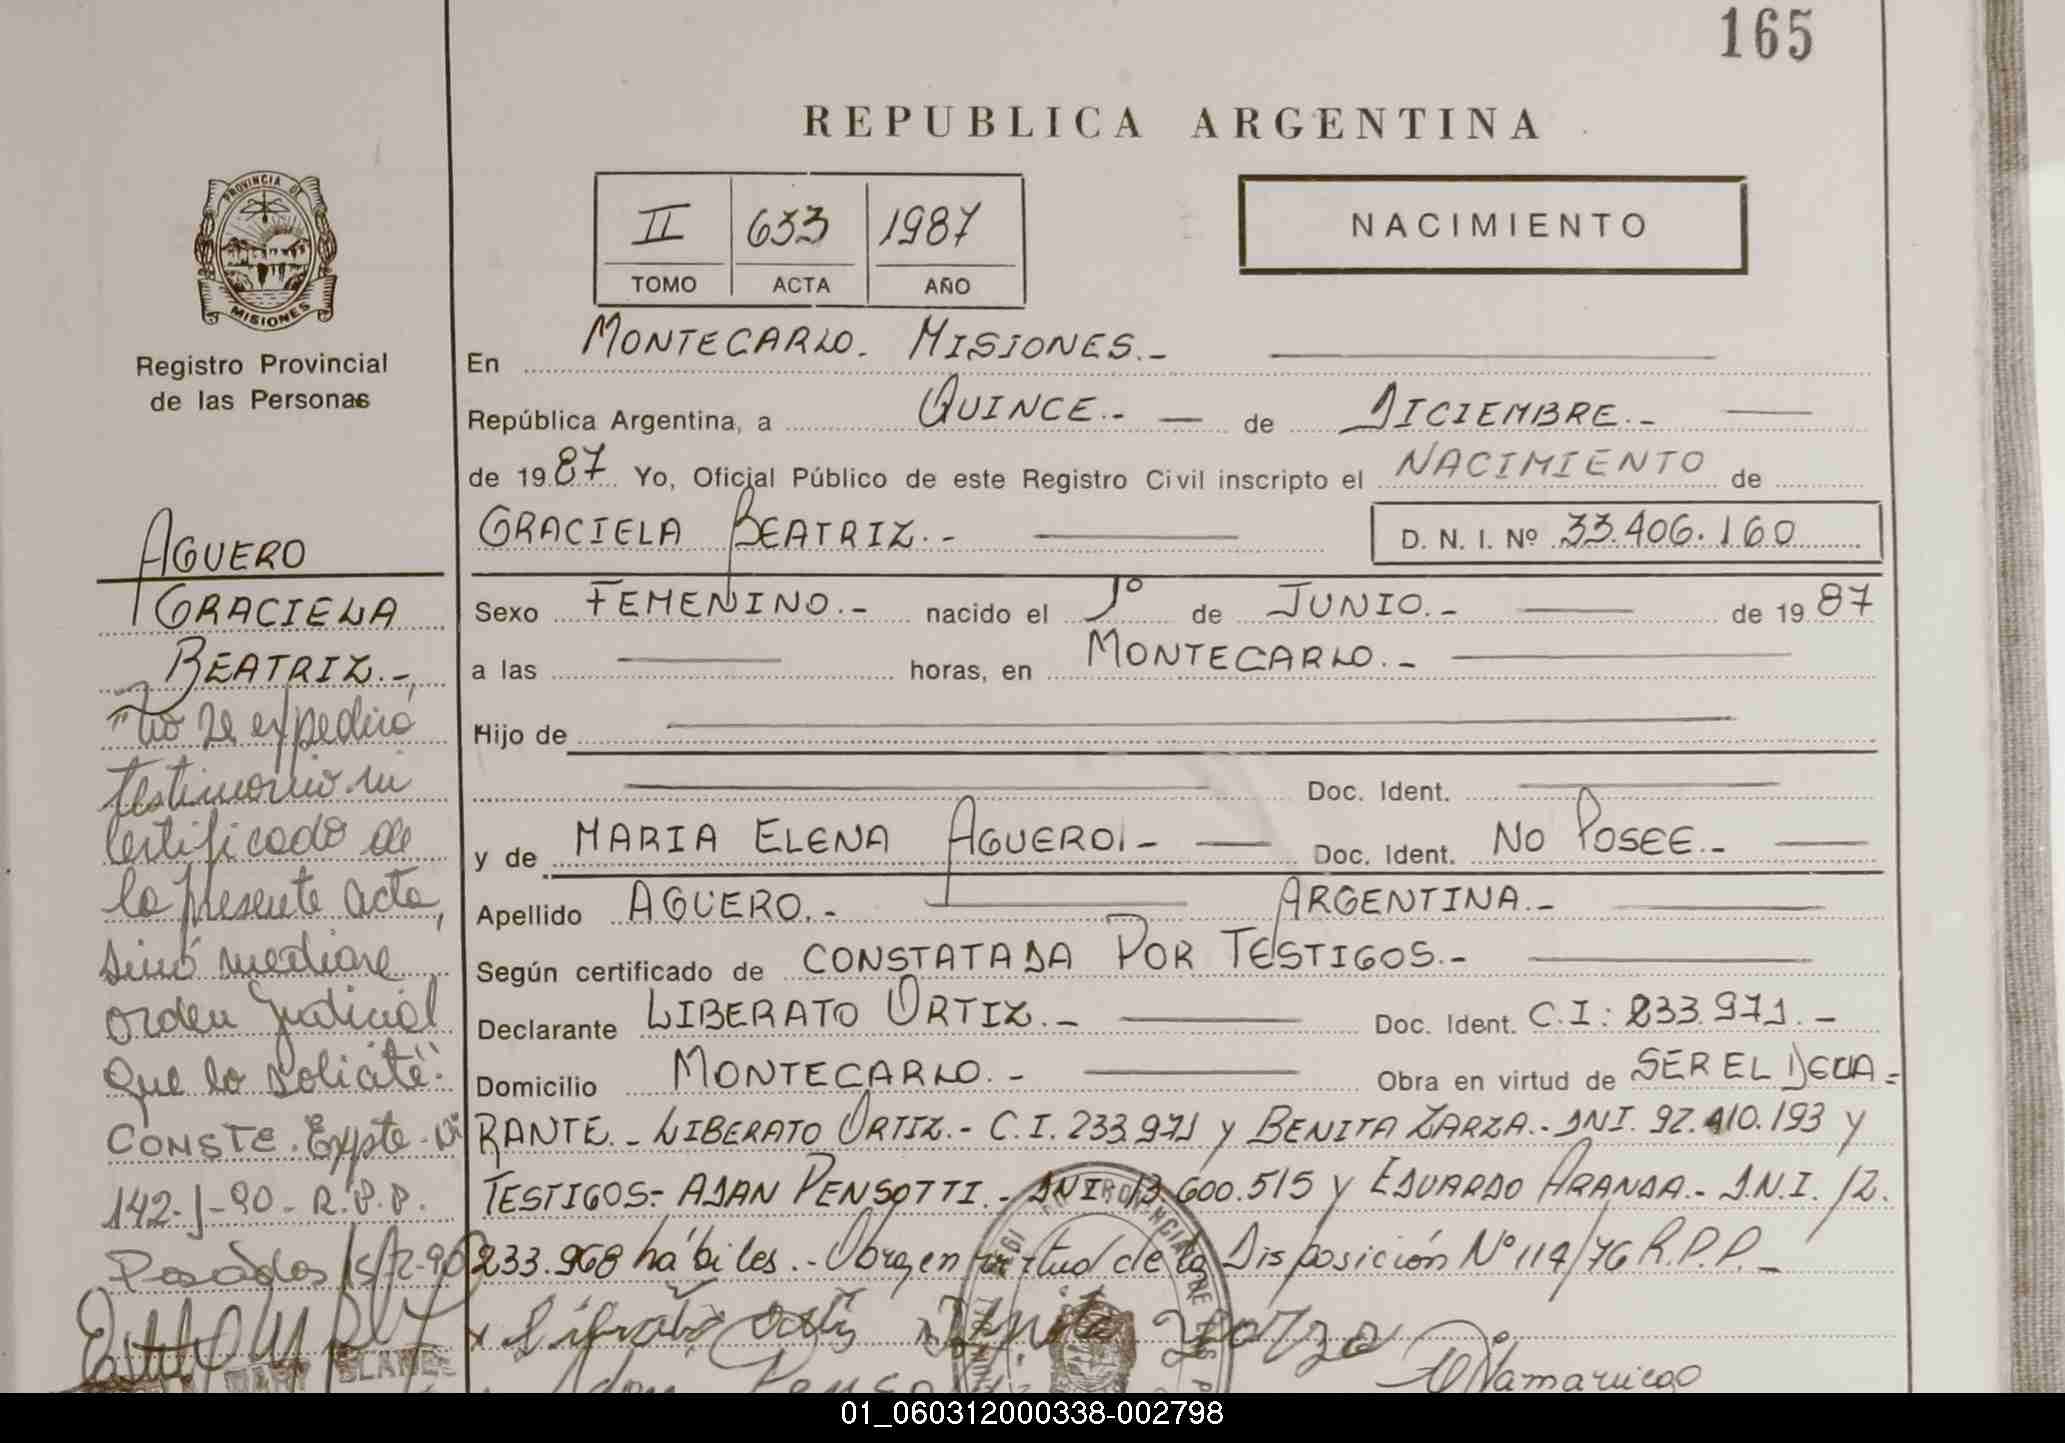 165
REPUBLICA ARGENTINA
PROVINCIA DE
MISIONES
Registro Provincial
de las Personas
II 633 1987
TOMO ACTA AÑO
NACIMIENTO
En MONTECARLO. MISIONES.-
República Argentina, a QUINCE.- de DICIEMBRE.-
de 1987 Yo, Oficial Público de este Registro Civil inscripto el NACIMIENTO de
GRACIELA BEATRIZ.- D. N. I. Nº 33.406.160
Sexo FEMENINO.- nacido el 1º de JUNIO.- de 1987
a las horas, en MONTECARLO.-
Hijo de
Doc. Ident.
y de MARIA ELENA AGUERO.- Doc. Ident. NO POSEE.-
Apellido AGUERO.- ARGENTINA.-
Según certificado de CONSTATADA POR TESTIGOS.-
Declarante LIBERATO ORTIZ.- Doc. Ident. C.I: 233.971.-
Domicilio MONTECARLO.- Obra en virtud de SER EL DECLA-
RANTE.- LIBERATO ORTIZ.- C.I. 233.971 y BENITA ZARZA.- DNI. 92.410.193 y
TESTIGOS:- ADAN PENSOTTI.- DNI 13.600.515 y EDUARDO ARANDA.- D.N.I. 12.
233.968 hábiles.- Obra en virtud de la Disposición Nº 114/76 R.P.P.-
AGUERO
GRACIELA
BEATRIZ.-
"No se expedirá
testimonio ni
certificado de
la presente acta,
sinó mediane
orden judicial
que lo solicite".
CONSTE. Expte. Nº
142-J-90- R.P.P.
Posadas
Benita Zarza
01_060312000338-002798